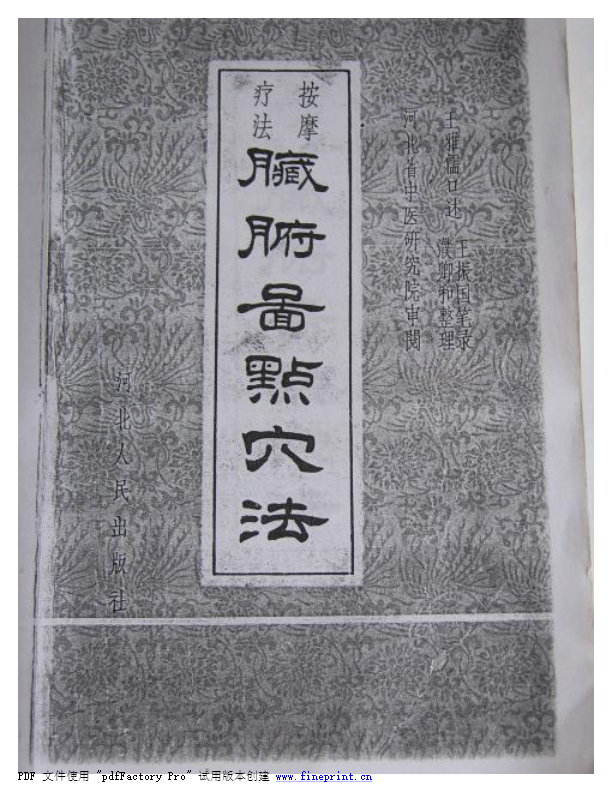 王雅儒口述
王振国笔录
濮卿和整理
河北省中医研究院审阅
按摩
疗法
臟腑啚點穴法
河北人民出版社
PDF 文件使用 "pdfFactory Pro" 试用版本创建 www.fineprint.cn